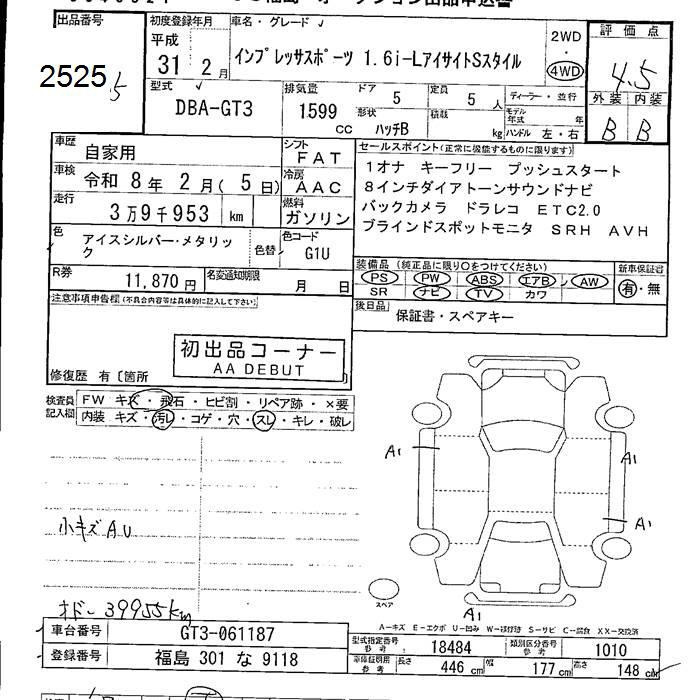 出品番号
2525
5
初度登録年月
平成
31 2月
車名・グレード
インプレッサスポーツ 1.6i-LアイサイトSスタイル
2WD
・
4WD
評価点
4.5
外装 内装
B B
型式
DBA-GT3
排気量
1599
CC
ドア
5
形状
ハッチB
定員
5 人
積載
kg
ディーラー・並行
モデル年式 年
ハンドル 左・右
車歴
自家用
車検
令和 8年 2月(5日)
走行
3万9千953 km
色
アイスシルバー・メタリック
色替
シフト
FAT
冷房
AAC
燃料
ガソリン
色コード
G1U
R券
11,870円
名変通知期限
月 日
セールスポイント(正常に機能するものに限ります)
1オナ キーフリー プッシュスタート
8インチダイアトーンサウンドナビ
バックカメラ ドラレコ ETC2.0
ブラインドスポットモニタ SRH AVH
装備品(純正品に限り○をつけてください)
PS PW ABS エアB AW
SR ナビ TV カワ
新車保証書
有・無
後日品
保証書・スペアキー
注意事項申告欄(不具合内容等は具体的に記入して下さい)
初出品コーナー
AA DEBUT
修復歴 有〔箇所
検査員記入欄
FW キズ・飛石・ヒビ割・リペア跡・×要
内装 キズ・汚レ・コゲ・穴・スレ・キレ・破レ
小キズAU
オドー39955km
A1
A1
A1
A1
スペア
A-キズ E-エクボ U-凹み W-補修跡 S-サビ C-腐食 XX-交換済
車台番号
GT3-061187
登録番号
福島 301 な 9118
型式指定番号
参考
18484
類別区分番号
参考
1010
車庫証明用
参考
長さ
446 cm
幅
177 cm
高さ
148 cm